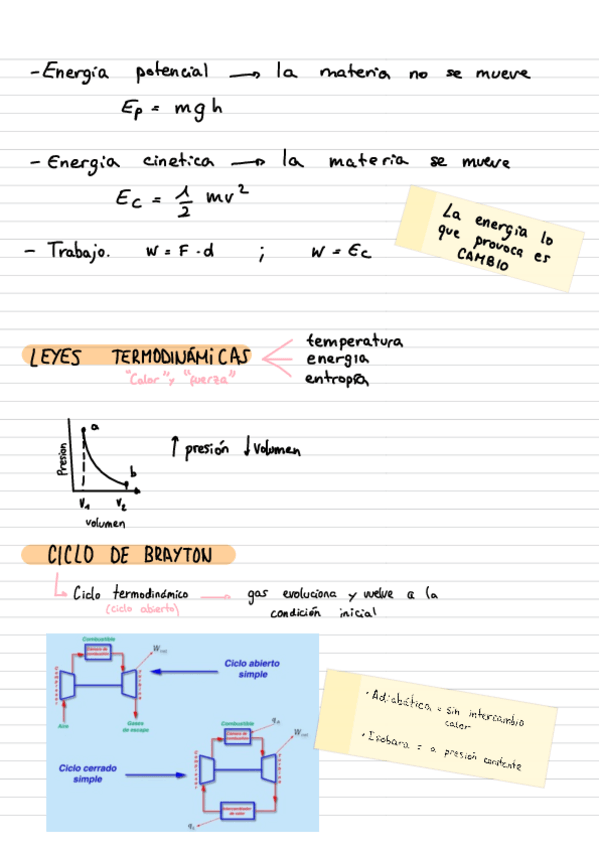 - Energía potencial → la materia no se mueve
Ep = mgh
- Energia cinetica → la materia se mueve
Ec = 1/2 mv²
La energia lo
que provoca es
CAMBIO
- Trabajo. W = F · d ; W = Ec
LEYES TERMODINÁMICAS
"Calor" y "fuerza"
temperatura
energia
entropía
Presion
a
b
V1 V2
volumen
↑ presión ↓ volumen
CICLO DE BRAYTON
Ciclo termodinámico → gas evoluciona y vuelve a la
(ciclo abierto)
condición inicial
Combustible
Cámara de
combustión
Aire
Gases
de escape
Ciclo abierto
simple
Combustible
Cámara de
combustión
Ciclo cerrado
simple
Intercambiador
de calor
· Adiabática = sin intercambio
calor
· Isobara = a presión constante